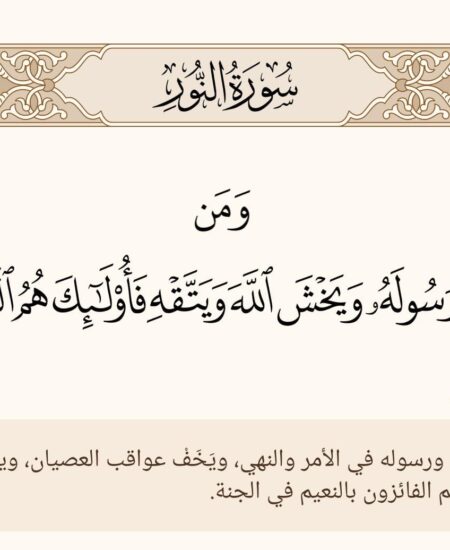 سُورَةُ النُّورِ
وَمَن
وَرَسُولَهُۥ وَيَخۡشَ ٱللَّهَ وَيَتَّقۡهِ فَأُوْلَٰٓئِكَ هُمُ
ورسوله في الأمر والنهي، ويَخَفْ عواقب العصيان،
الفائزون بالنعيم في الجنة.